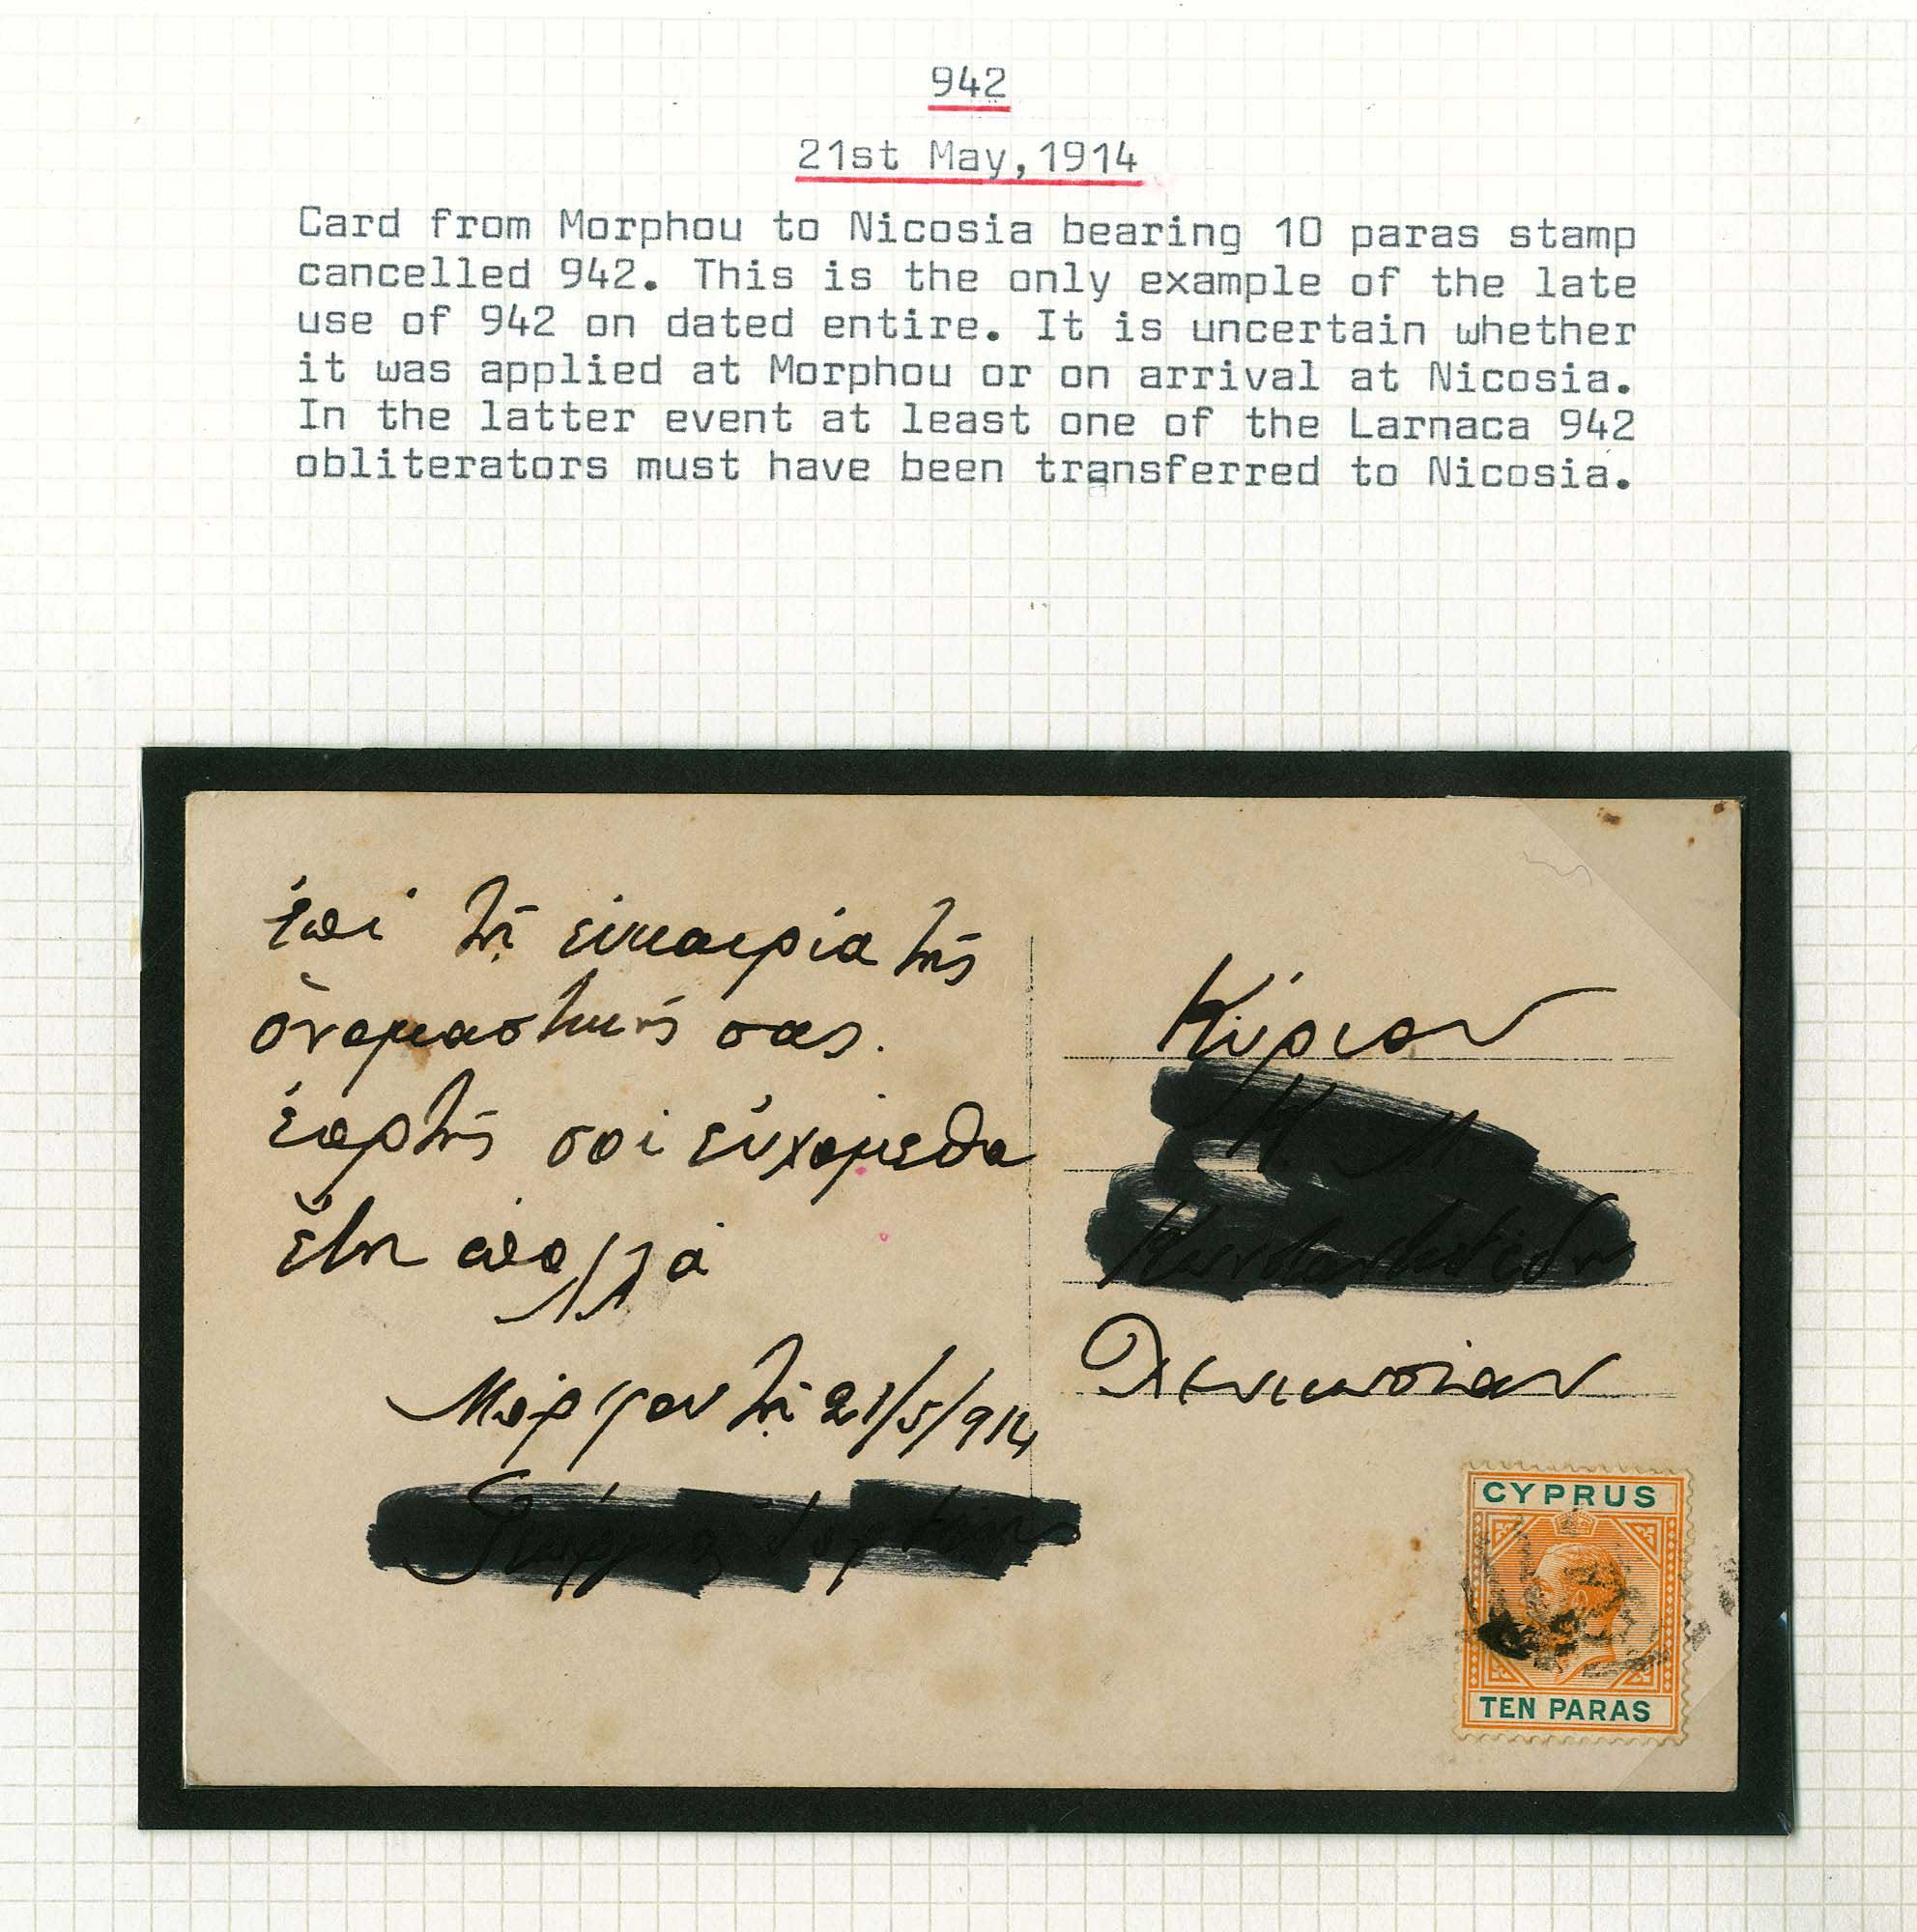 942
21st May,1914
Card from Morphou to Nicosia bearing 10 paras stamp
cancelled 942. This is the only example of the late
use of 942 on dated entire. It is uncertain whether
it was applied at Morphou or on arrival at Nicosia.
In the latter event at least one of the Larnaca 942
obliterators must have been transferred to Nicosia.
ἐπὶ τῇ εὐκαιρίᾳ τῆς
ὀνομαστικῆς σας.
ἑορτῆς σοὶ εὐχόμεθα
ἔτη πολλά
Μόρφου τῇ 21/5/914
Κύριον
Λευκωσίαν
CYPRUS
TEN PARAS